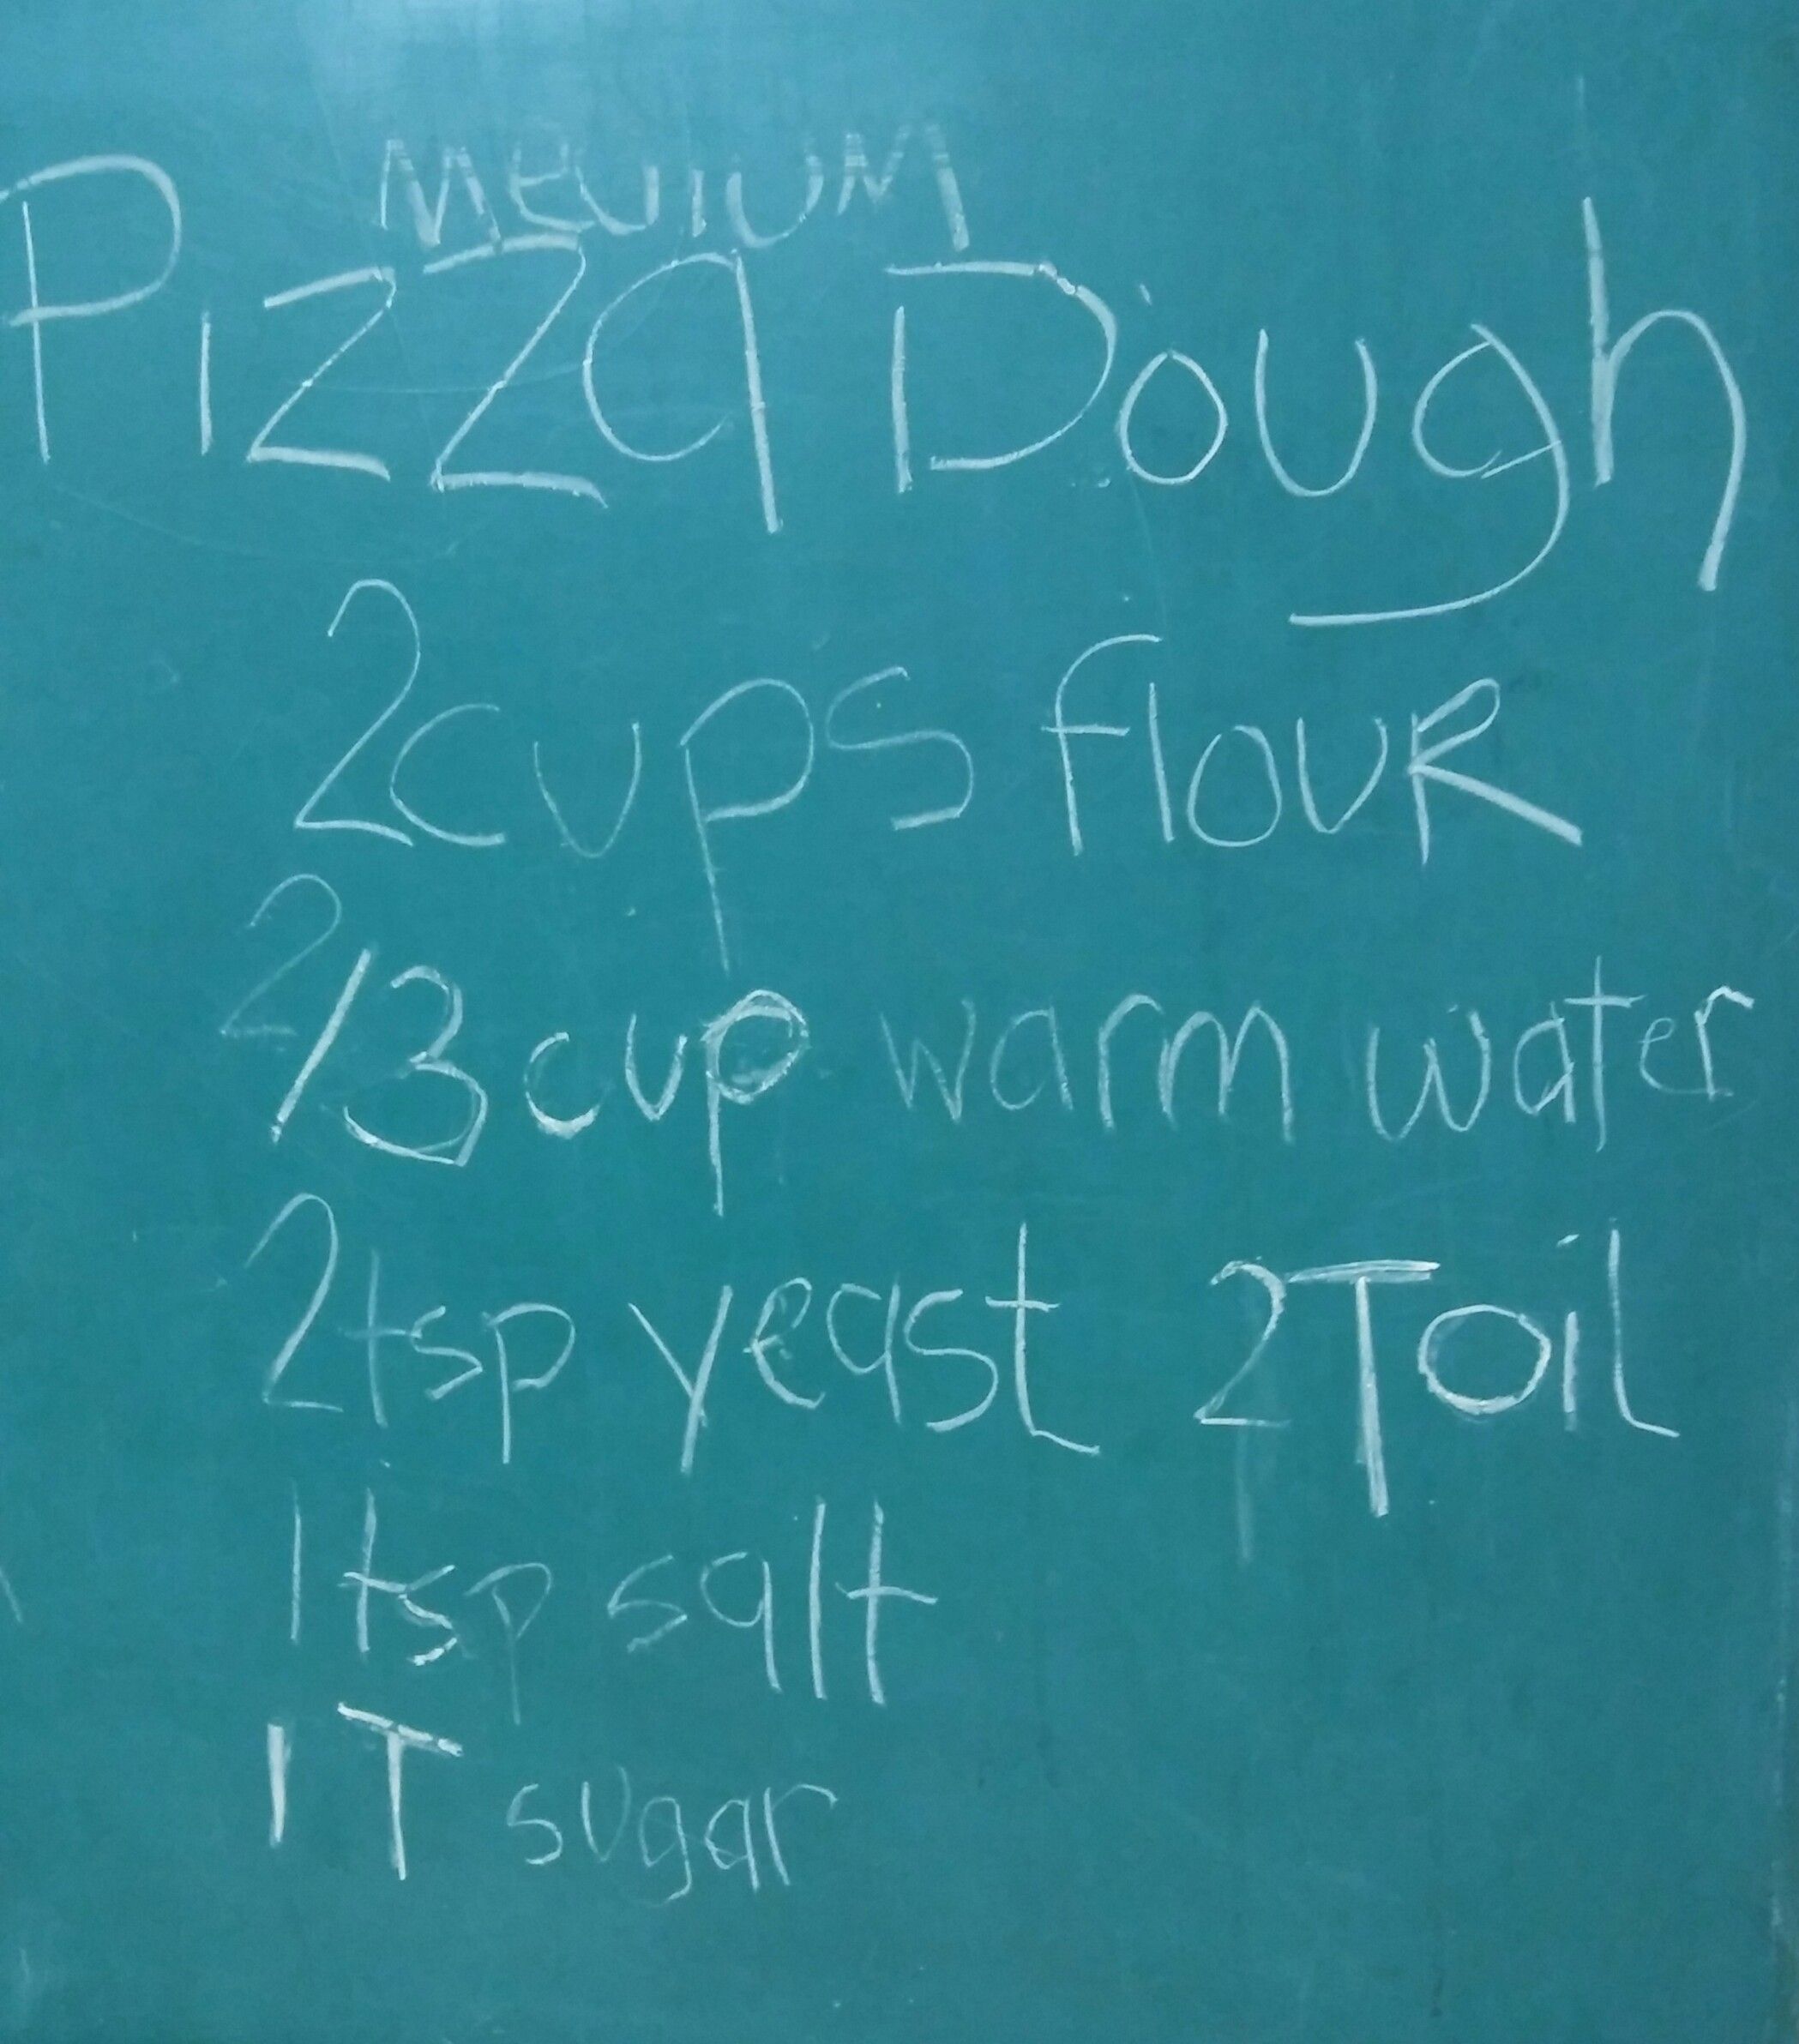 MEDIUM
Pizza Dough
2cups flouR
2/3 cup warm water
2tsp yeast 2T oil
1tsp salt
1T sugar